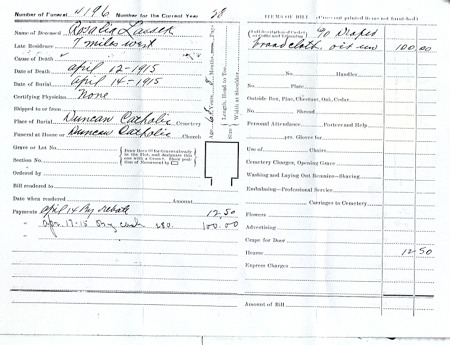 Number of Funeral 4196 Number for the Current Year 28
Name of Deceased Rosalia
Late Residence 7 miles west
Cause of Death
Date of Death april 12-1915
Date of Burial april 14-1915
Certifying Physician None
Shipped to or from
Place of Burial Duncan Catholic Cemetery
Funeral at Home or Duncan Catholic Church
Grave or Lot No.
Section No.
Ordered by
Bill rendered to
Date when rendered Amount
Payments april 14 By rebate 12.50
" apr. 17-15 By cash 100.00
Age Years, 8 Months, Days
Size Length, Head to Toe
Width at Shoulder
ITEMS OF BILL
90 Draped
broadcloth 100.00
No. Handles
No. Plate
Outside Box, Pine, Chestnut, Oak, Cedar
No. Shroud
Personal Attendance Porters and Help
prs. Gloves for
Use of Chairs
Cemetery Charges, Opening Grave
Washing and Laying Out Remains—Shaving
Embalming—Professional Service
Carriages to Cemetery
Flowers
Advertising
Crape for Door
Hearse 12 50
Express Charges
Amount of Bill